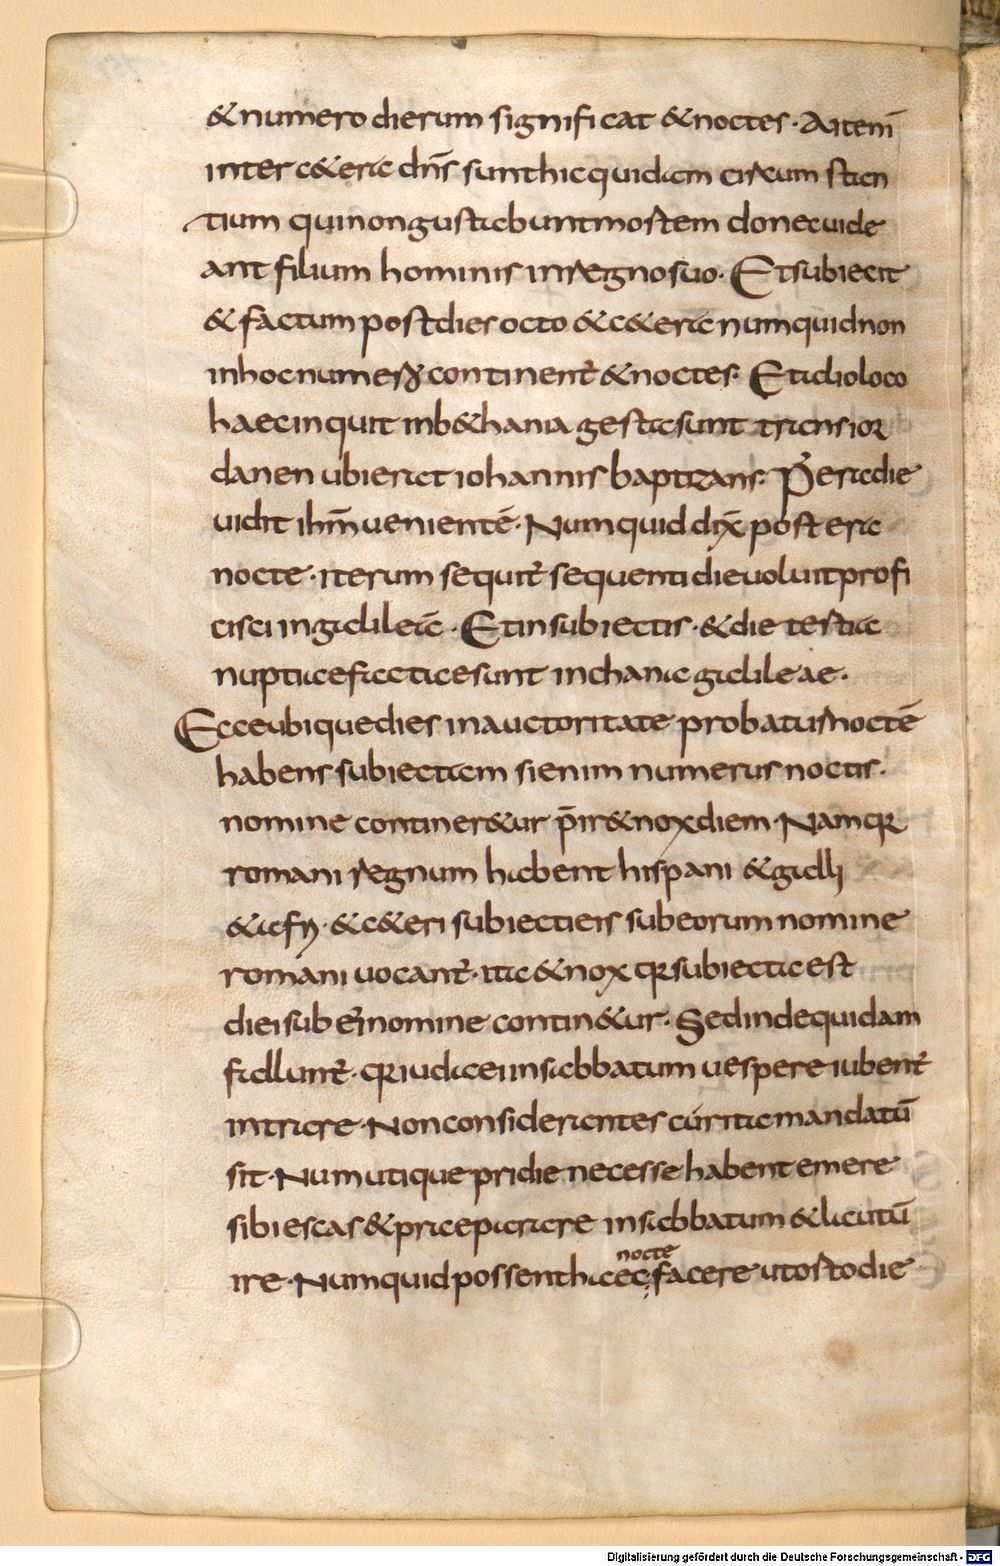 & numero dierum significat & noctes · Ait enī
inter c&era dn̄s sunt hic quidam circum stan
tium qui non gustabunt mortem donec uide
ant filium hominis in regno suo · Et subiecit
& factum post dies octo & c&era numquid non
in hoc numero continent̄ & noctes · Et id eo loco
haec inquit in b&hania gesta sunt trans ior
danen ubi erat iohannis baptizans · P̄ era die
uidit ih̄m uenientē · Numquid dix̄ post era
nocte · iterum sequit̄ sequenti die uoluit profi
cisci in galileā · Et in subiectis · & die tertia
nuptiae factae sunt in chana galileae ·
Ecce ubique dies in auctoritate probatur noctē
habens subiectam si enim numerus noctis ·
nomine contineretur p̄ir& nox diem Namq;
romani regnum habent hispani & galli
& afri · & c&eri subiecti eis sub eorum nomine
romani uocant̄ · ita & nox q; subiecta est
diei sub ei' nomine contin&ur · Sed inde quidam
fallunt̄ · q; iudaei in sabbatum uespere iubent̄
intrare · Non considerantes cur ita mandatū
sit · Num utique pridie necesse habent emere
sibi escas & praeparare in sabbatum & lauatū
ire · Numquid possent haec nocte facere ut ostodie
Digitalisierung gefördert durch die Deutsche Forschungsgemeinschaft - DFG